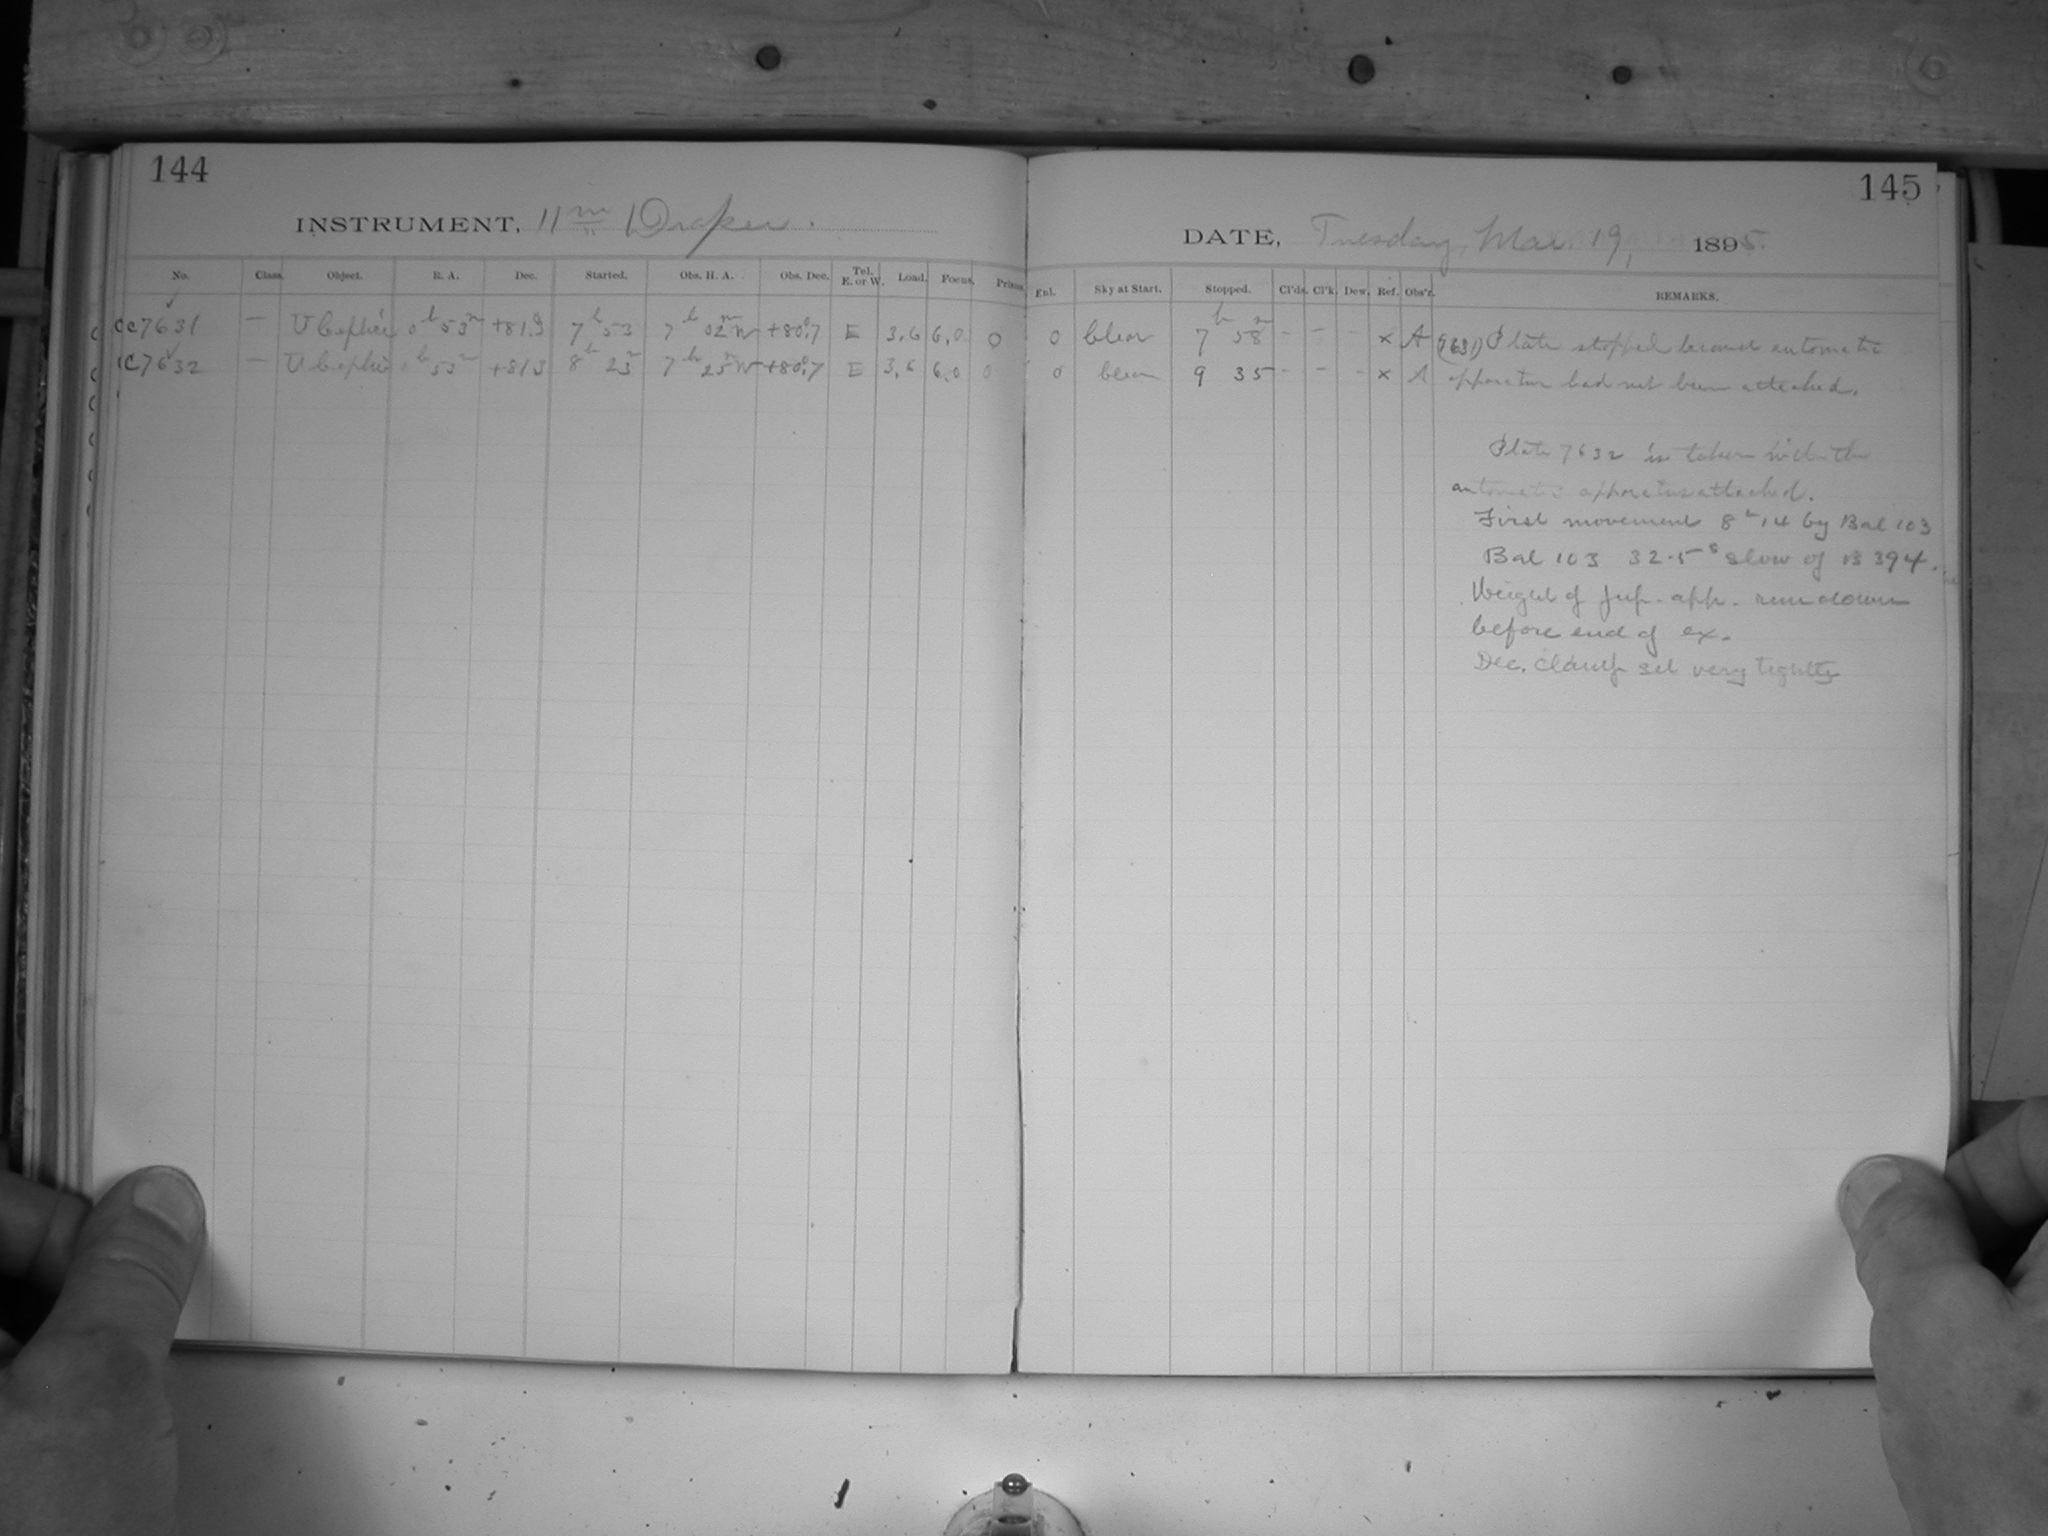 144
145
INSTRUMENT, 11 in Draper.
DATE, Tuesday, Mar. 19, 1895.
No. Class. Object. R. A. Dec. Started. Obs. H. A. Obs. Dec. Tel. E. or W. Load. Focus. Prisms. Enl. Sky at Start. Stopped. Cl'ds. Cl'k. Dew. Ref. Obs'r. REMARKS.
C 7631 — U Cephei 0h 53m +81.3 7h 53 7h 02m W +80°.7 E 3.6 6.0 0 0 Clear 7h 58m - - - x A (7631) Plate stopped because automatic
C 7632 — U Cephei 53m +81.3 8h 23m 7h 25m W +80°.7 E 3.6 6.0 0 0 Clear 9 35 - - - x A apparatus had not been attached.
Plate 7632 is taken with the
automatic apparatus attached.
First movement 8h 14 by Bal 103
Bal 103 32.5s slow of B 394.
Weight of Jup. app. run down
before end of ex.
Dec. clamp set very tightly